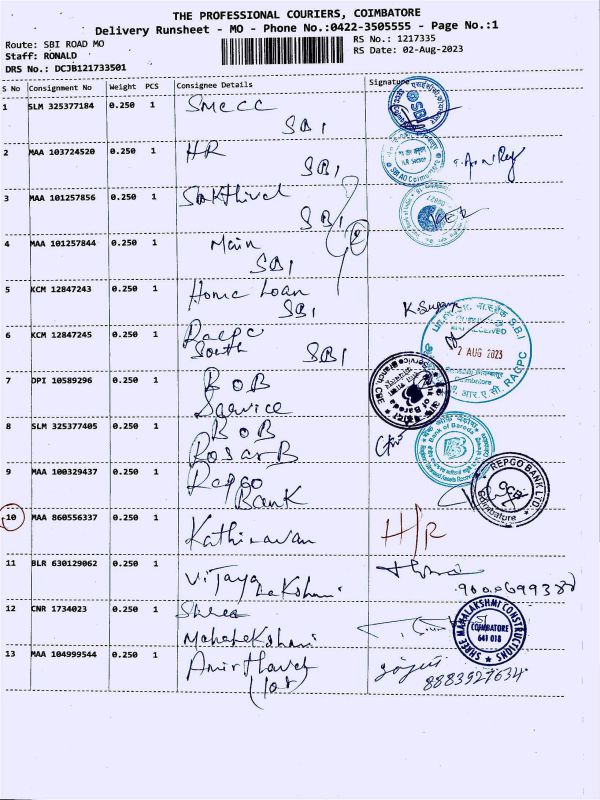 THE PROFESSIONAL COURIERS, COIMBATORE
Delivery Runsheet - MO - Phone No.:0422-3505555 - Page No.:1
Route: SBI ROAD MO
RS No.: 1217335
Staff: RONALD
RS Date: 02-Aug-2023
DRS No.: DCJB121733501
S No Consignment No Weight PCS Consignee Details Signature
1 SLM 325377184 0.250 1 SMECC
SBI
2 MAA 103724520 0.250 1 HR
SBI
3 MAA 101257856 0.250 1 Sakthivel
SBI
4 MAA 101257844 0.250 1 Main
SBI
5 KCM 12847243 0.250 1 Home Loan
SBI
6 KCM 12847245 0.250 1 Racpc
South SBI
2 AUG 2023
RACPC
7 DPI 10589296 0.250 1 BOB
Service
Bank of Baroda
8 SLM 325377405 0.250 1 BOB
Rosarb
Bank of Baroda
9 MAA 100329437 0.250 1 Repco
Bank
REPCO BANK LTD.
Coimbatore
10 MAA 860556337 0.250 1 Kathiravan H/R
11 BLR 630129062 0.250 1 Vijaya
Lakshmi
12 CNR 1734023 0.250 1 Shree
Mahalekshmi
SHREE MAHALAKSHMI CONSTRUCTIONS
COIMBATORE
641 018
13 MAA 104999544 0.250 1
8883927634